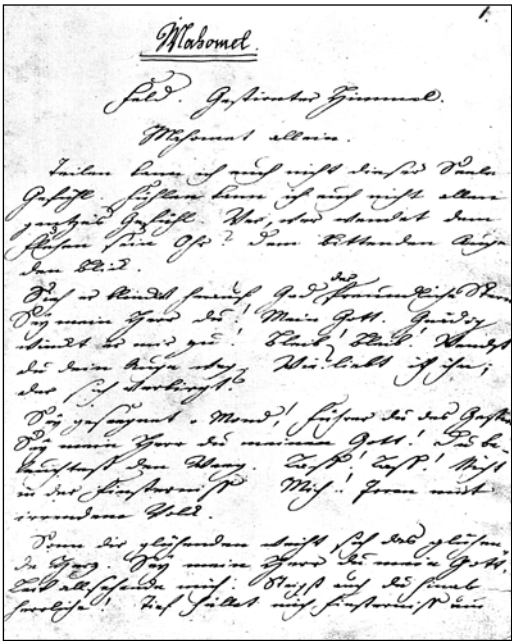 1.
Mahomet.
Feld. Gestirnter Himmel.
Mahomet allein.
Teilen kann ich euch nicht dieser Seele
Gefühl. Fühlen kann ich euch nicht allen
ganzes Gefühl. Wer, wer wendet dem
Flehen sein Ohr? Dem bittenden Auge
den Blick.
Sieh er blinket herauf Gad der freundliche Stern
Sey mein Herr du! Mein Gott. Gnädig
winkt er mir zu! Bleib! Bleib! Wendst
du dein Auge weg. Wie liebt ich ihn,
der sich verbirgt?
Sey gesegnet o Mond! Führer du des Gestirns
Sey mein Herr du meinen Gott! Du be-
leuchtest den Weeg. Lass! Lass! Nicht
in der Finsterniss Mich! Irren mit
irrendem Volk.
Sonn dir glühenden weiht sich das glühen
de Herz. Sey mein Herr du mein Gott.
Leit allsehende mich. Steigst auch du hinab
herrliche! Tief hüllet mich Finsterniss ein